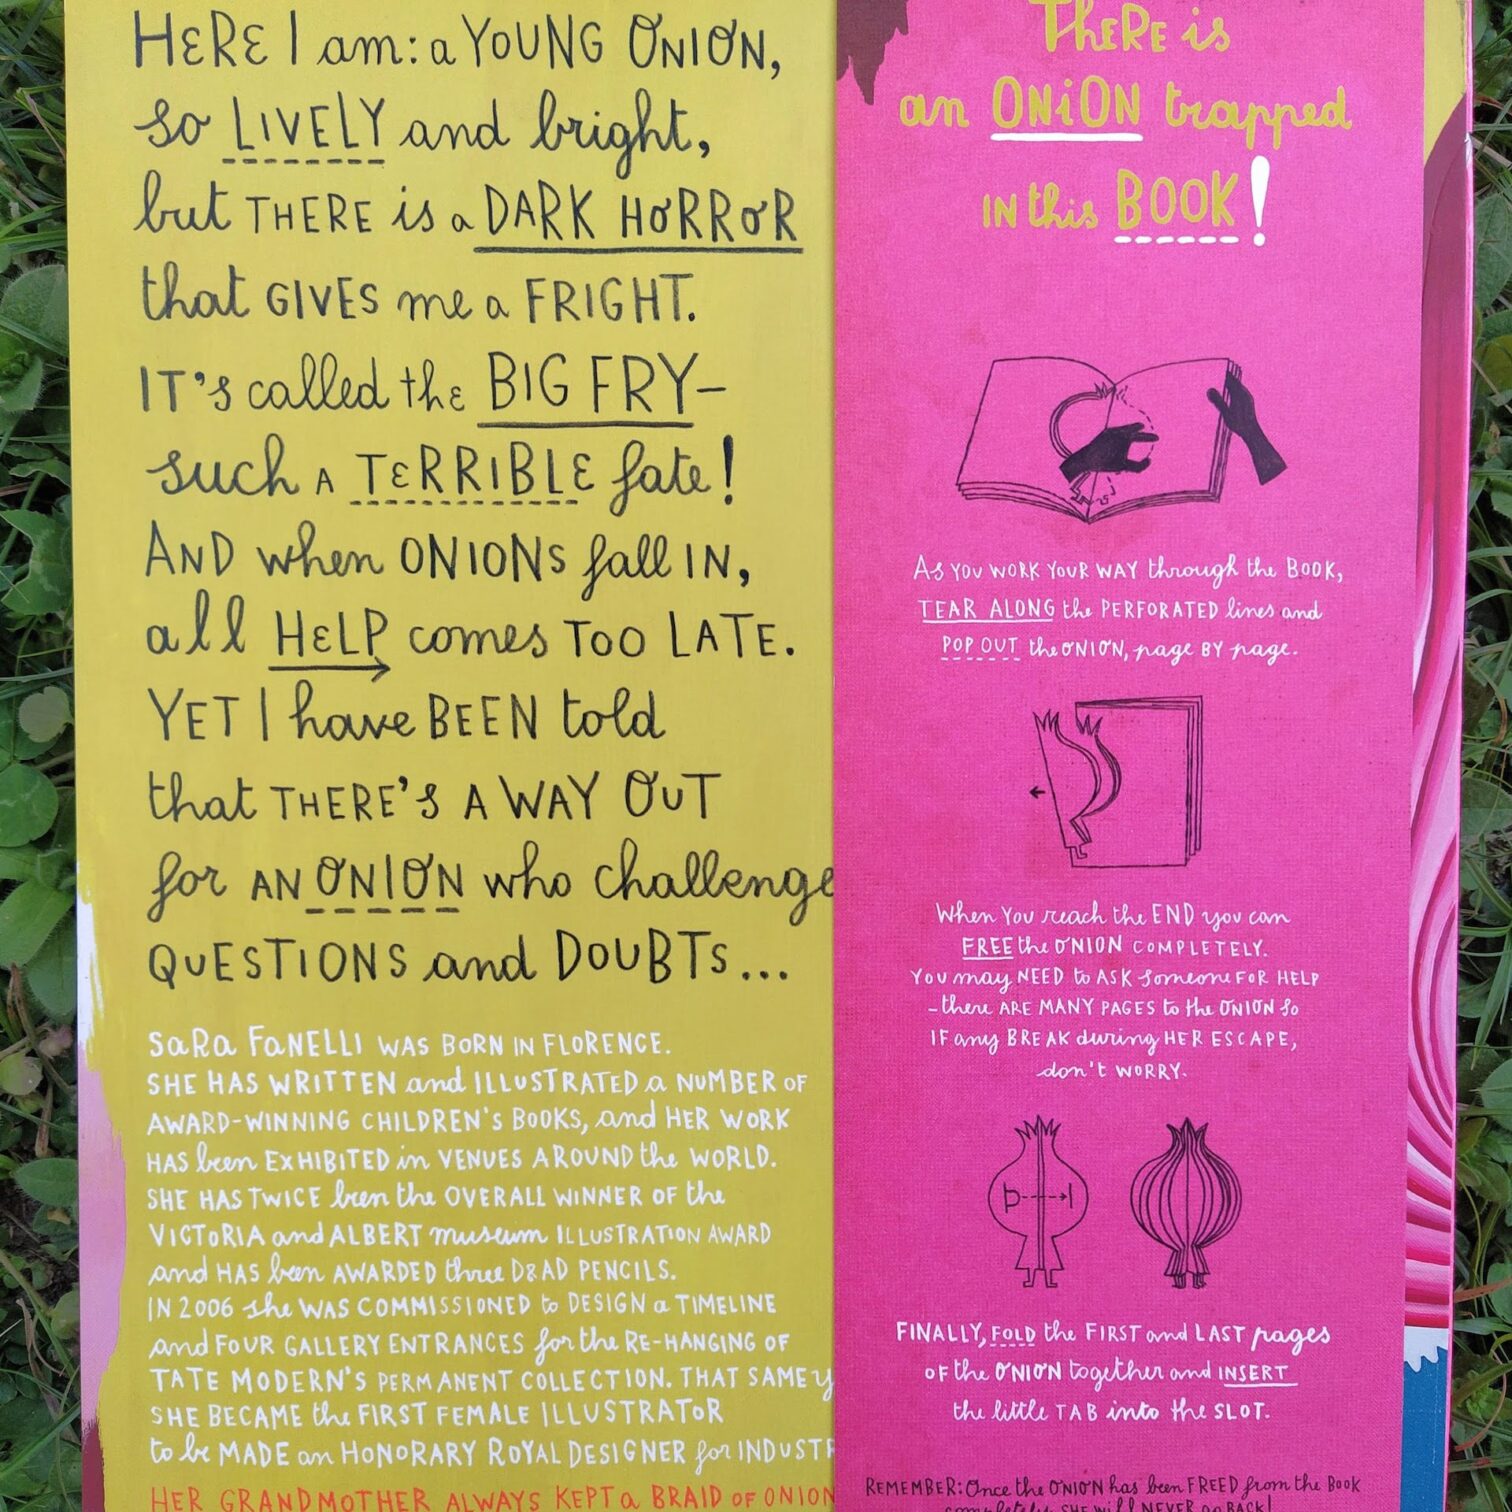 HERE I am: a YOUNG ONION,
so LIVELY and bright,
but THERE is a DARK HORROR
that GIVES me a FRIGHT.
IT'S called the BIG FRY–
such A TERRIBLE fate!
AND when ONIONS fall IN,
all HELP comes TOO LATE.
YET I have BEEN told
that THERE'S A WAY OUT
for AN ONION who challenge
QUESTIONS and DOUBTS...
SARA FANELLI WAS BORN IN FLORENCE.
SHE HAS WRITTEN and ILLUSTRATED a NUMBER OF
AWARD-WINNING CHILDREN'S BOOKS, and HER WORK
HAS been EXHIBITED in VENUES AROUND the WORLD.
SHE HAS TWICE been the OVERALL WINNER OF the
VICTORIA and ALBERT museum ILLUSTRATION AWARD
and HAS been AWARDED three D&AD PENCILS.
IN 2006 she WAS COMMISSIONED to DESIGN a TIMELINE
and FOUR GALLERY ENTRANCES for the RE-HANGING OF
TATE MODERN'S PERMANENT COLLECTION. THAT SAME y
SHE BECAME the FIRST FEMALE ILLUSTRATOR
to be MADE an HONORARY ROYAL DESIGNER for INDUSTR
HER GRANDMOTHER ALWAYS KEPT a BRAID OF ONION
THERE is
an ONION trapped
IN this BOOK!
AS YOU WORK YOUR WAY through the BOOK,
TEAR ALONG the PERFORATED lines and
POP OUT the ONION, page BY page.
When YOU reach the END you can
FREE the ONION COMPLETELY.
YOU may NEED to ASK someone FOR HELP
– there ARE MANY PAGES to the ONION so
IF any BREAK during HER ESCAPE,
don't WORRY.
FINALLY, FOLD the FIRST and LAST pages
OF the ONION together and INSERT
the little TAB into the SLOT.
REMEMBER: Once the ONION has been FREED from the BOOK
completely, SHE will NEVER go BACK!